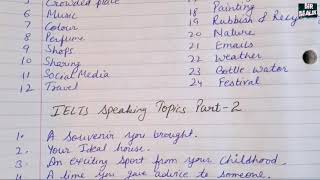 5 Crowded place
6 Music
7 Colour
8 Perfume
9 Shops
10 Sharing
11 Social Media
12 Travel
18 Painting
19 Rubbish & Recyc
20 Nature
21 Emails
22 Weather
23 Bottle Water
24 Festival
BIR REALIK
IELTS Speaking Topics Part-2
1. A souvenir you brought.
2. Your Ideal house.
3. An exciting sport from your childhood.
4. A time you gave advice to someone.